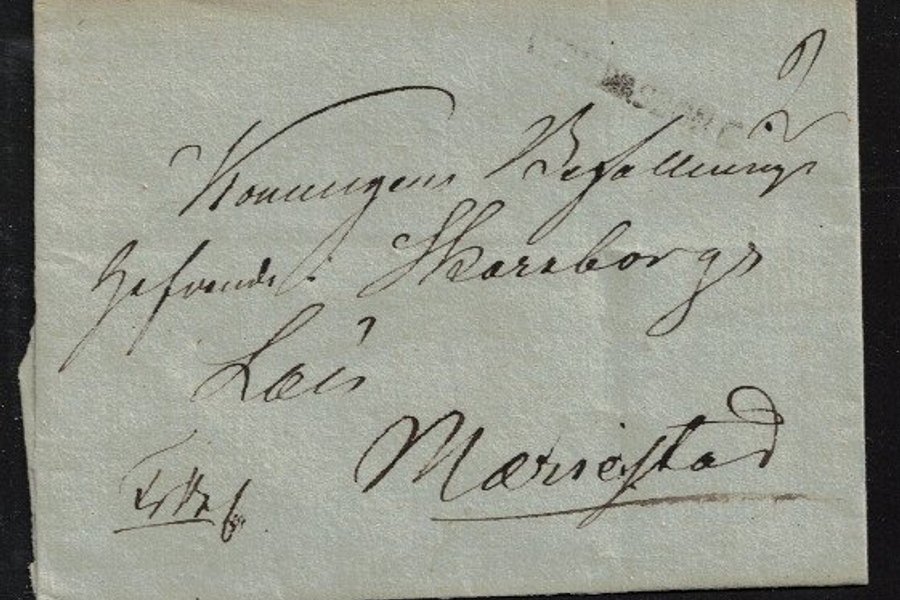 2
Konungens Befallnings
Hafvande i Skaraborgs
Län
Mariestad